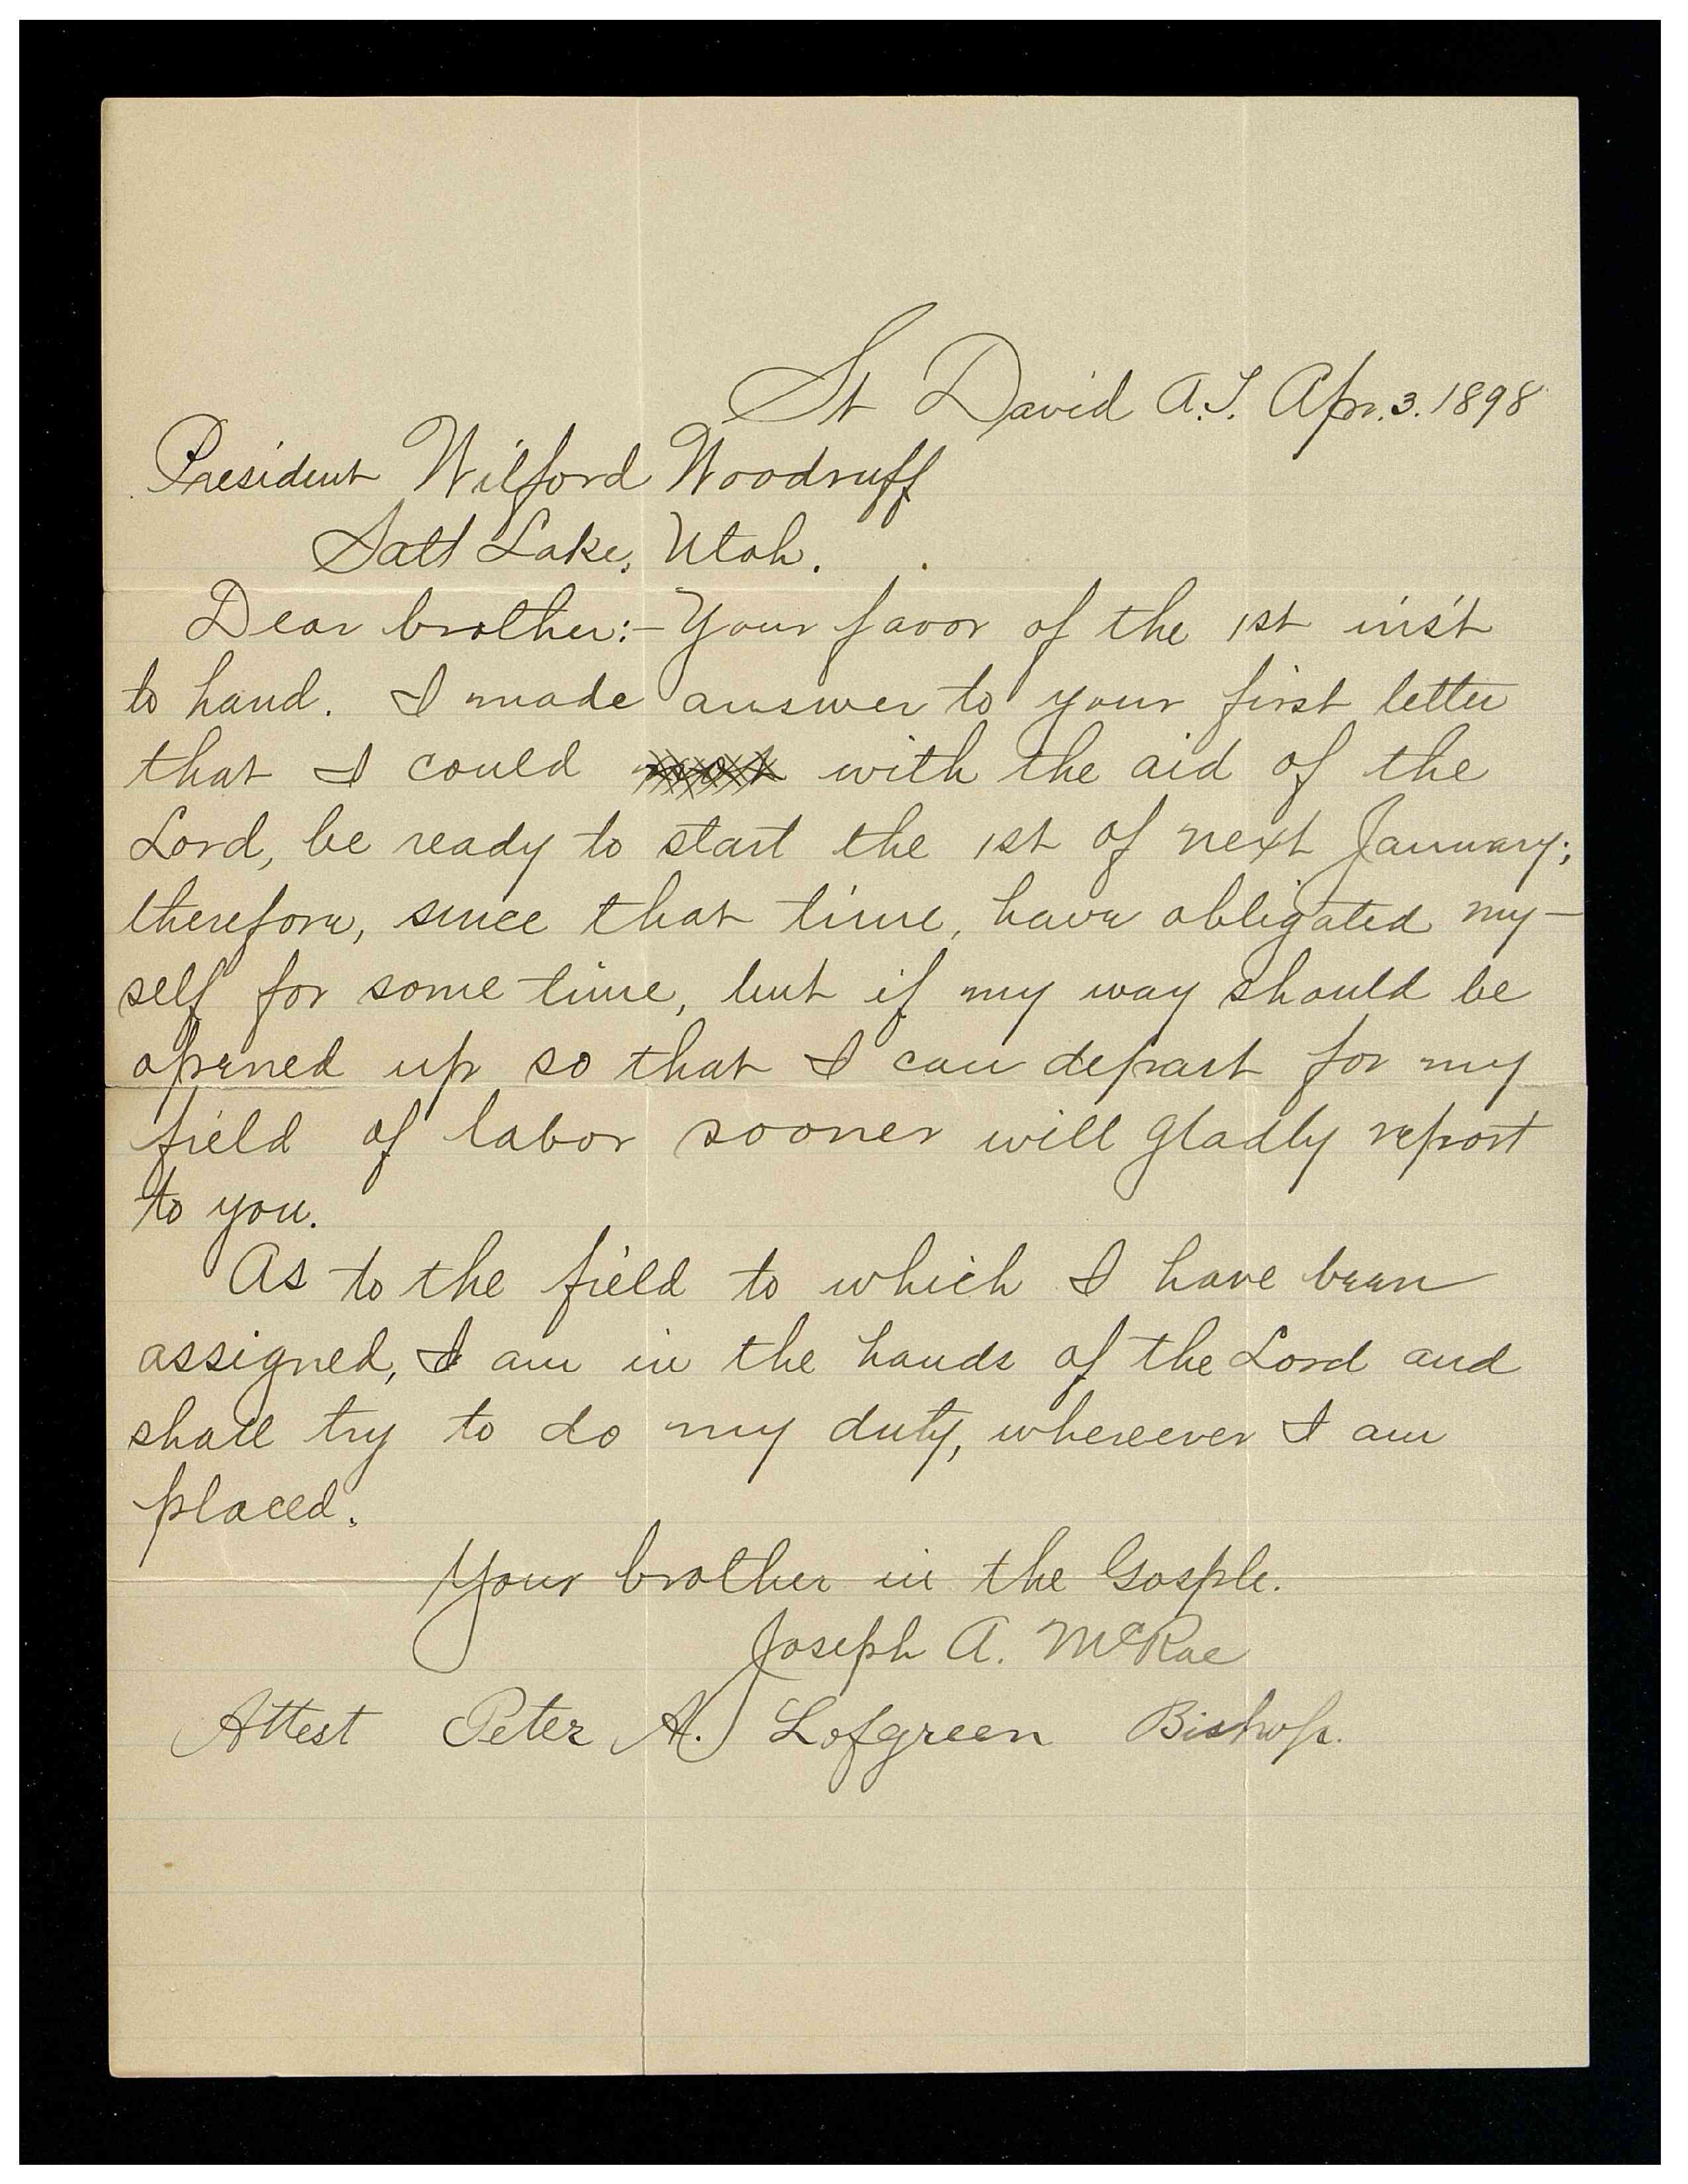 St David A.T. Apr. 3. 1898
President Wilford Woodruff
Salt Lake, Utah.
Dear brother:- Your favor of the 1st ins't
to hand. I made answer to your first letter
that I could with the aid of the
Lord, be ready to start the 1st of next January;
therefore, since that time, have obligated my-
self for some time, but if my way should be
opened up so that I can depart for my
field of labor sooner will gladly report
to you.
As to the field to which I have been
assigned, I am in the hands of the Lord and
shall try to do my duty, whereever I am
placed.
Your brother in the Gosple.
Joseph A. McRae
Attest Peter A. Lofgreen Bishop.